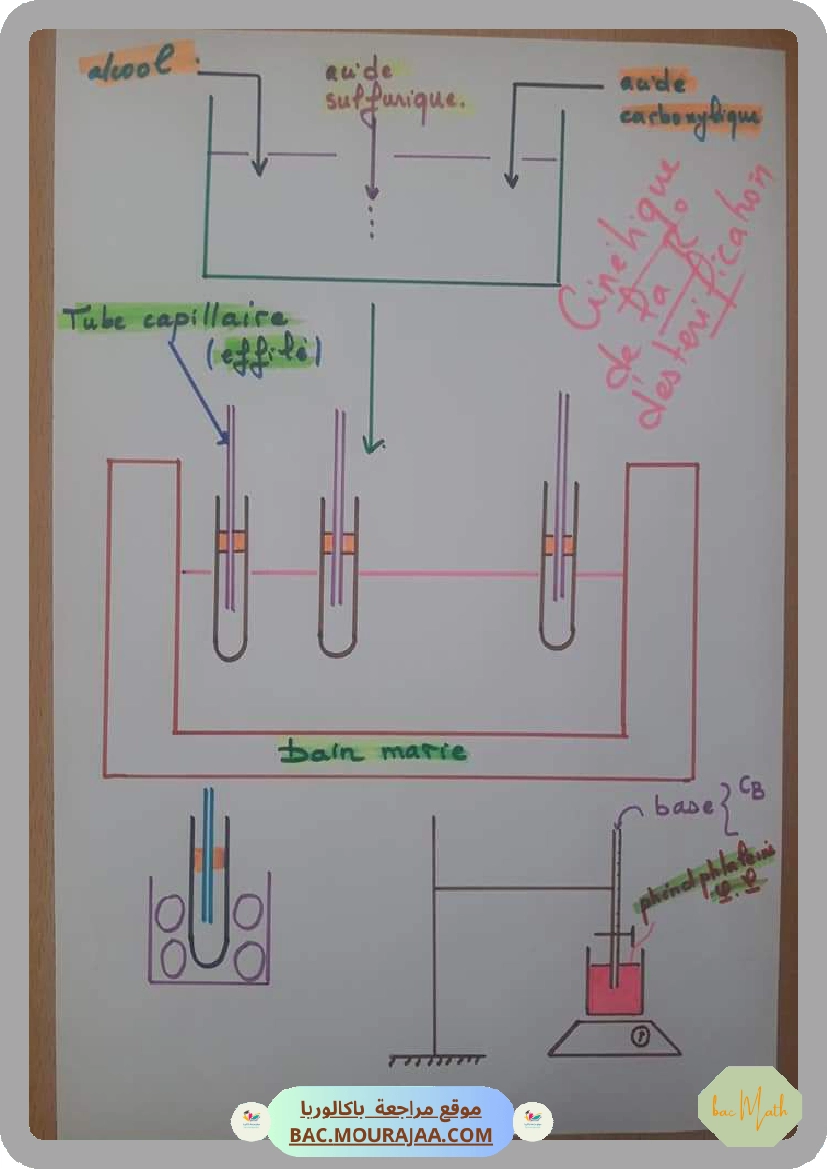 alcool.
acide
sulfurique.
acide
carboxylique
Cinétique
de la R°
d'esterification
Tube capillaire
(effilé)
bain marie
base { CB
φ.φ
موقع مراجعة باكالوريا
BAC.MOURAJAA.COM
bac Math